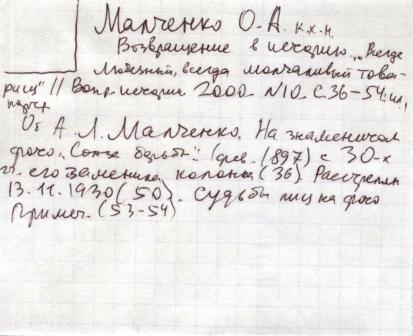 Малченко О.А. к.х.н.
Возвращение в историю „Всегда
любезный, всегда молчаливый това-
рищ" // Вопр. истории 2000. N10. С. 36-54: ил.,
портр.
Об А.Л. Малченко. На знаменитом
фото „Союза борьбы". (фев. 1897) с 30-х
гг. его заменила колонна (36). Расстрелян
13.11.1930 (50). Судьбы лиц на фото
Примеч. (53-54)